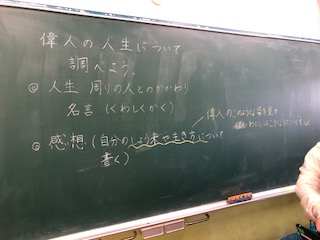 偉人の人生について
調べよう。
◎人生 周りの人とのかかわり
名言（くわしくかく）
◎感想（自分のしょう来や生き方について
書く）
偉人のこのような姿を見て